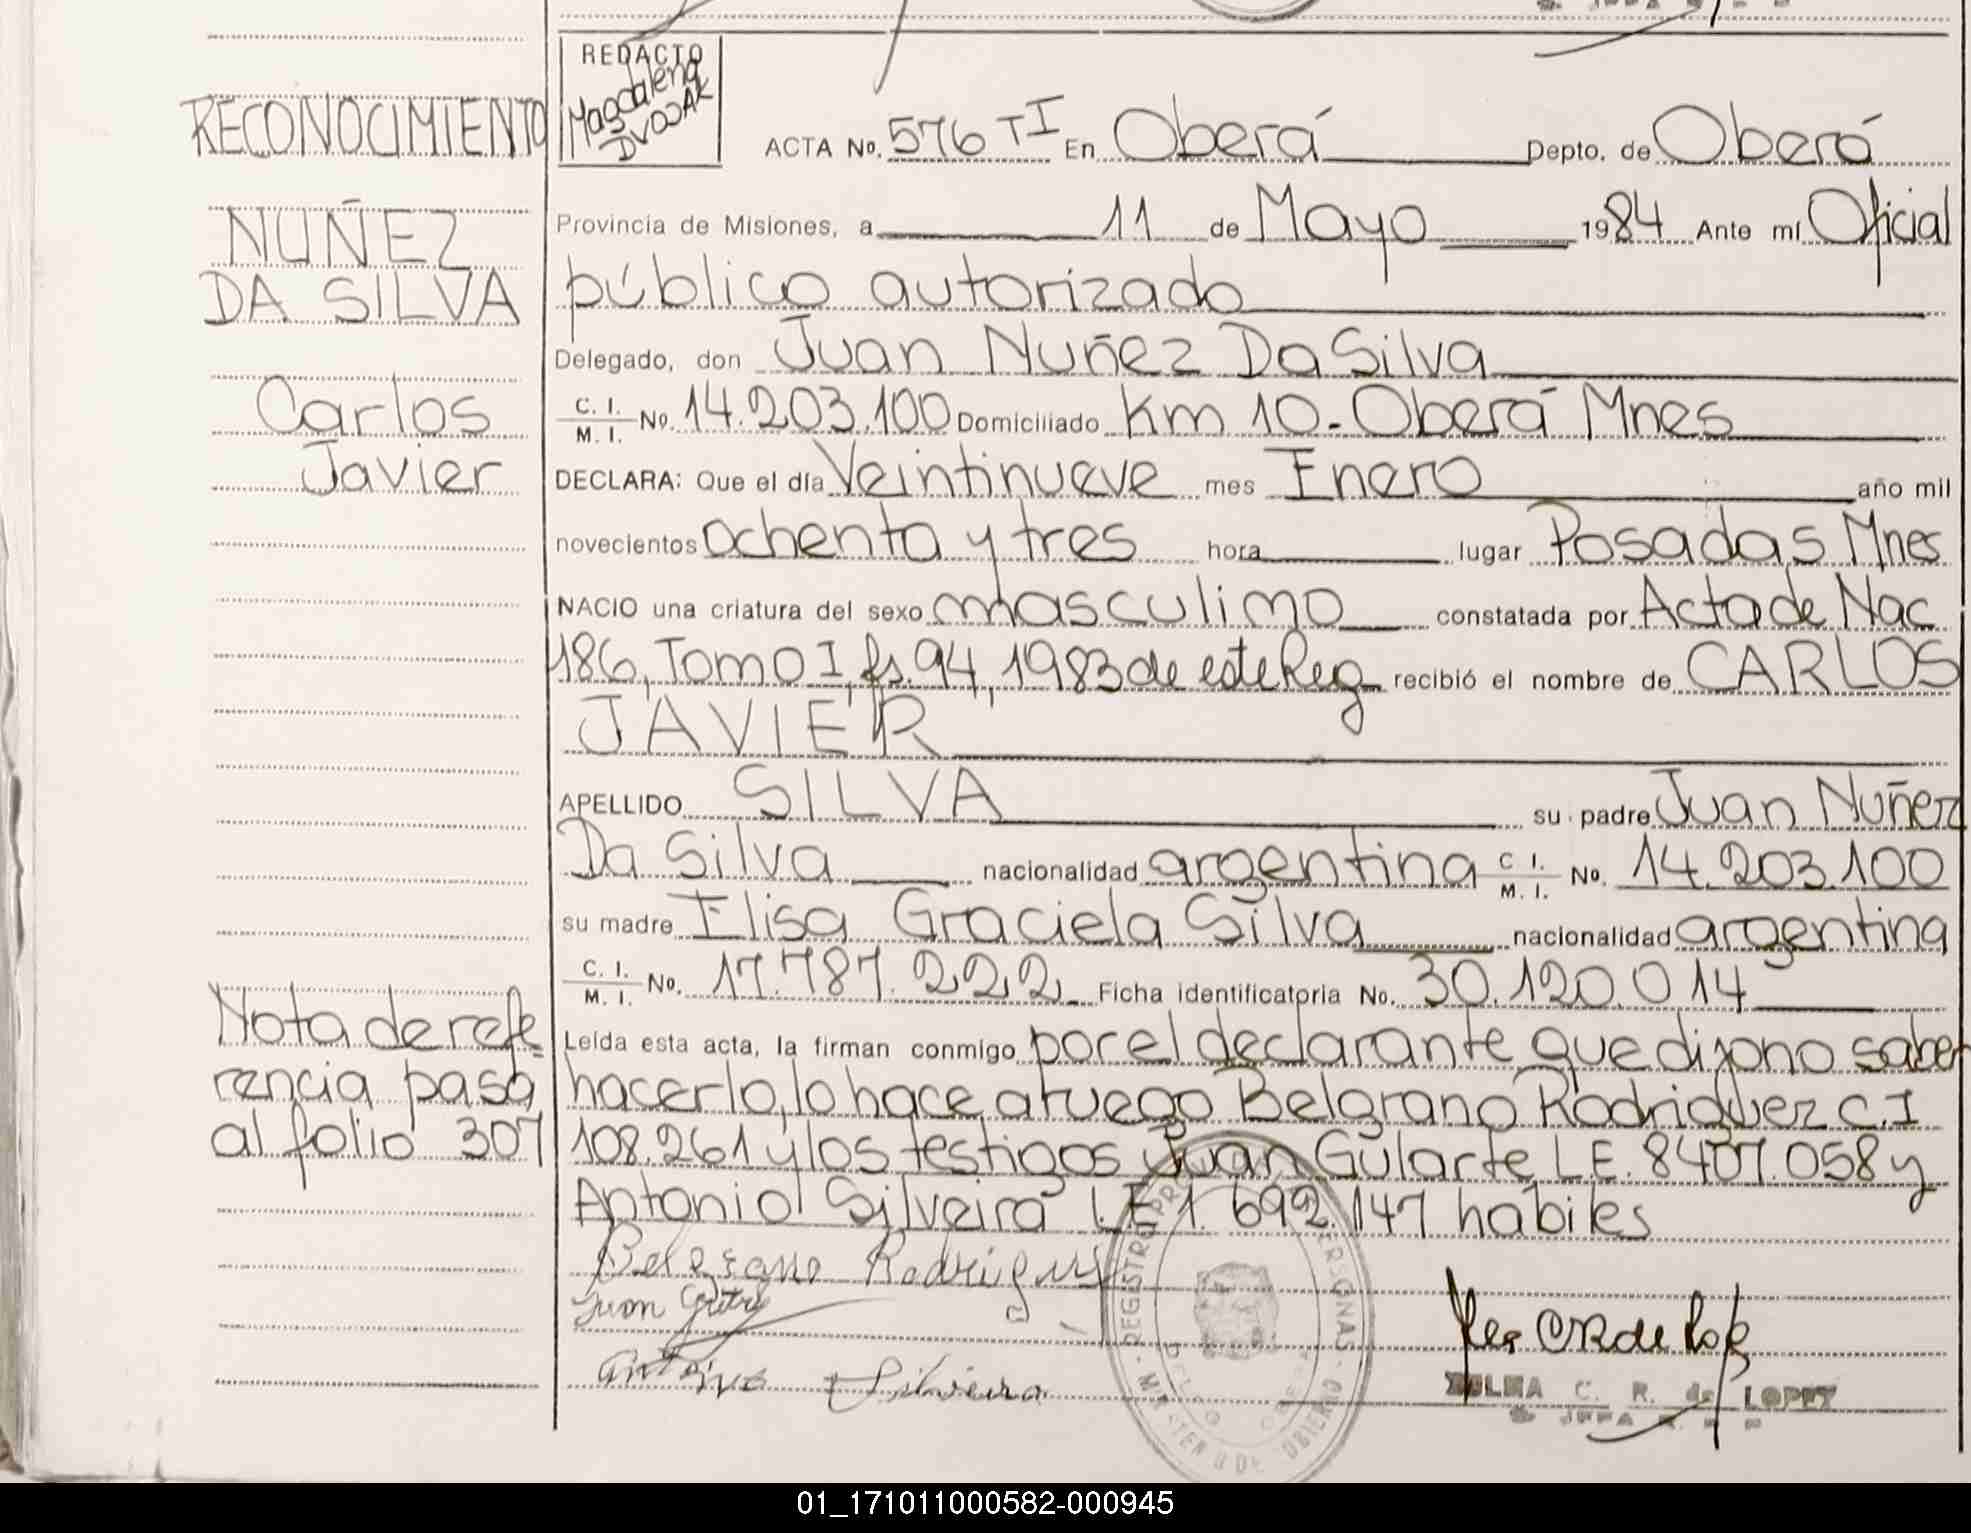 REDACTO
Magdalena
DVOJAK
RECONOCIMIENTO
ACTA No. 576 TI En Oberá Depto. de Oberá
NUÑEZ
DA SILVA
Carlos
Javier
Provincia de Misiones, a 11 de Mayo 1984 Ante mí Oficial
público autorizado
Delegado, don Juan Nuñez Da Silva
C. I. M. I. No. 14.203.100 Domiciliado Km 10 - Oberá Mnes
DECLARA: Que el día Veintinueve mes Enero año mil
novecientos ochenta y tres hora lugar Posadas Mnes
NACIO una criatura del sexo masculino constatada por Acta de Nac
186, Tomo I, fs. 94, 1983 de este Reg recibió el nombre de CARLOS
JAVIER
APELLIDO SILVA su padre Juan Nuñez
Da Silva nacionalidad argentina C I. M. I. No. 14.203.100
su madre Elisa Graciela Silva nacionalidad argentina
C. I. M. I. No. 17.787.222 Ficha identificatoria No. 30.120.014
Nota de refe=
rencia pasa
al folio 307
Leída esta acta, la firman conmigo por el declarante que dijo no saber
hacerlo, lo hace a ruego Belgrano Rodriguez C.I
108.261 y los testigos Juan Gularte L.E. 8407.058 y
Antonio Silveira L.E 1.692.147 hábiles
Belgrano Rodriguez
Juan
Antonio Silveira
ZULMA C. R. de LOPEZ
JEFA
01_171011000582-000945